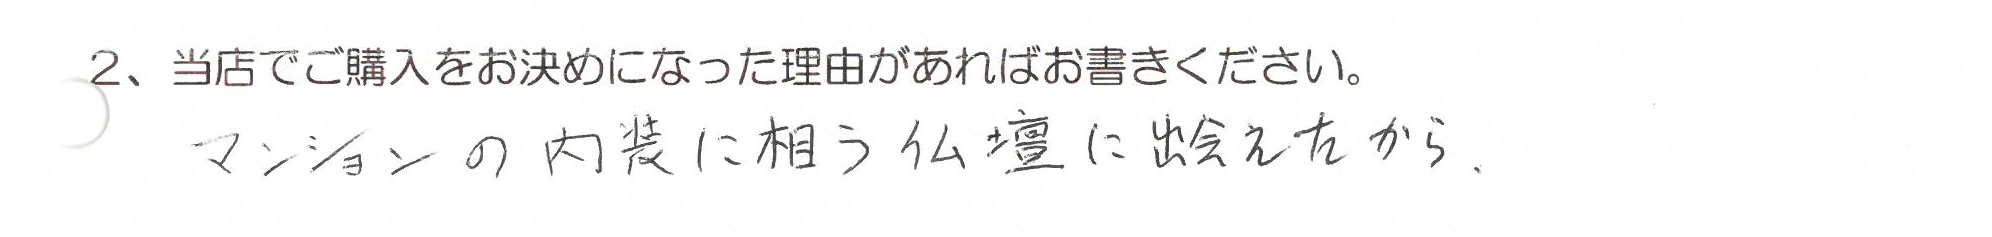 2、当店でご購入をお決めになった理由があればお書きください。
マンションの内装に相う仏壇に出会えたから.